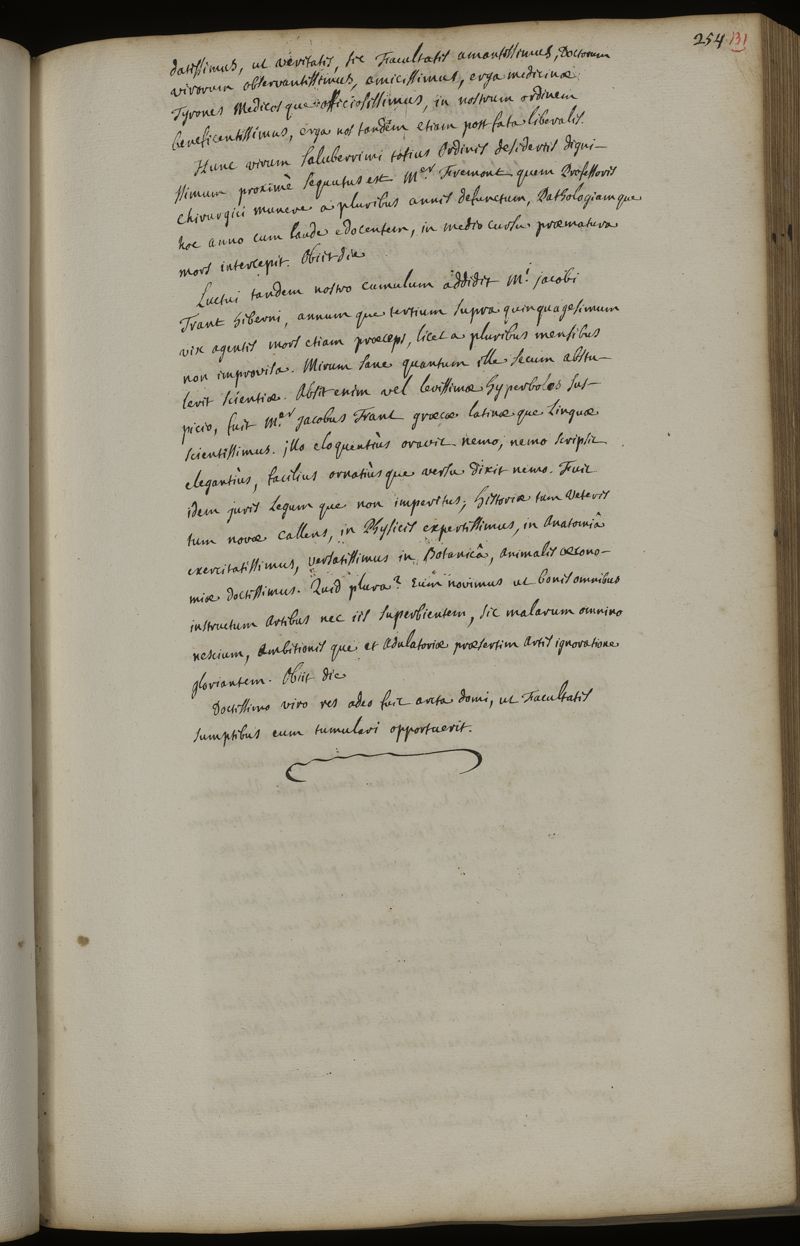 254 131
datissimus, ut veritatis, sic Facultatis amantissimus, Doctorum
virorum observantissimus, amicissimus, erga medicinæ
Tyrones Medicos que officiosissimus, in nostrum ordinem
beneficentissimus, erga nos tandem etiam post fata liberalis.
Hunc virum saluberrimi totius Ordinis desideriis digni-
ssimum proximè sequutus est M.er Firemont quem Professoris
Chirurgici munere a pluribus annis defunctum, Pathologiamque
hoc anno cum laude edocentem, in medio cursu præmatura
mors intercepit. Obiit die
Luctui tandem nostro cumulum addidit M.i jacobi
Trant hiberni, annum que tertium supra quinquagesimum
vix agentis mors etiam præceps, licet a pluribus mensibus
non improvisa. Mirum sane quantum ille secum abstu-
lerit scientiæ. Absit enim vel levissimæ hyperboles sus-
picio, fuit M.er jacobus Trant græcæ latinæ que Linguæ
scientissimus. illo eloquentiùs oravit nemo, nemo scripsit
elegantiùs, faciliùs ornatiùs que versu dixit nemo. Fuit
idem juris Legum que non imperitus, historiæ tum veteris
tum novæ callens, in Physicis expertissimus, in Anatomiâ
exercitatissimus, versatissimus in Botanicâ, animalis œcono-
miæ doctissimus. Quid plura? Eum novimus ut bonis omnibus
instructum Artibus nec iis superbientem, sic malarum omnino
nescium, Ambitionis que et Adulatoriæ præsertim artis ignoratione
gloriantem. Obiit die
Doctissimo viro res adeo fuit arcta domi, ut Facultatis
sumptibus eum tumulari opportuerit.